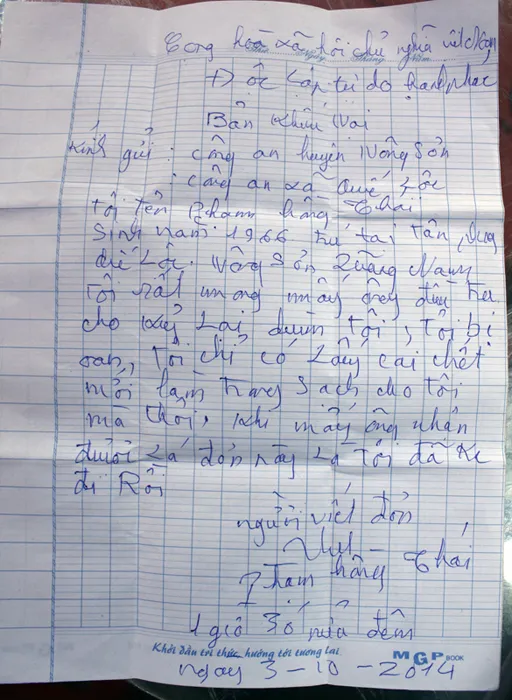 Cộng hoà xã hội chủ nghĩa việt Nam
Độc Lập tự do hạnh phúc
Bản khiếu Nại
Kính gửi: công an huyện Nông Sơn
: công an xã Quế Lộc
tôi tên Phạm hồng Thái
Sinh năm 1966 trú tại Tân
Quế Lộc. Nông Sơn Quảng Nam
tôi rất mong mấy ông điều tra
cho kỷ Lại dùm tôi, tôi bị
oan, tôi chỉ có Lấy cái chết
mới làm trong Sạch cho tôi
mà thôi, khi mấy ông nhận
được Lá đơn này Là tôi đã
đi Rồi
người viết đơn
Phạm hồng Thái
1 giờ 30 nữa đêm
Khởi đầu tri thức, hướng tới tương lai MGP BOOK
ngày 3-10-2014